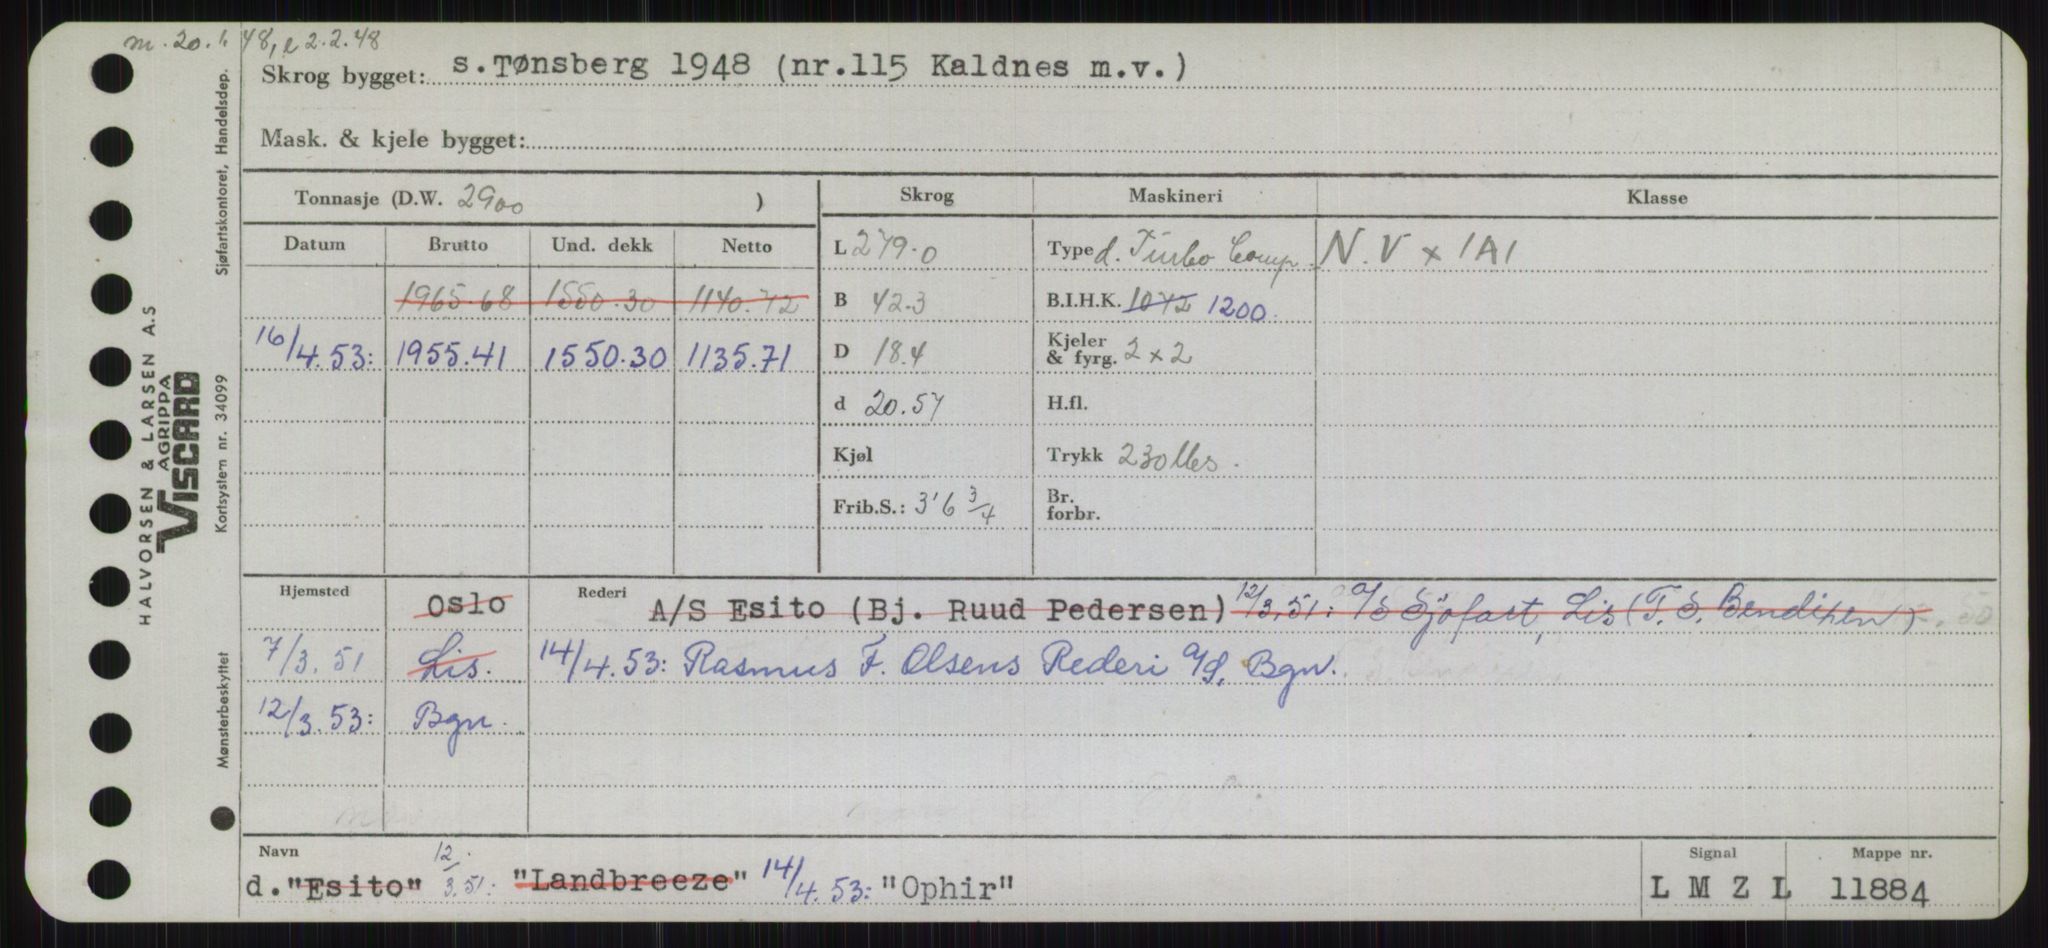 m. 20.1.48, e 2.2.48
Skrog bygget: s.Tønsberg 1948 (nr.115 Kaldnes m.v.)
Mask. & kjele bygget:
Tonnasje (D.W. 2900 )
Skrog Maskineri Klasse
Datum Brutto Und. dekk Netto
L 279.0 Type d. Turbo Comp. N.V x 1A1
1965.68 1550.30 1140.72 B 42.3 B.I.H.K. 1072 1200.
16/4.53: 1955.41 1550.30 1135.71 D 18.4 Kjeler & fyrg. 2 x 2
d 20.57 H.fl.
Kjøl Trykk 230 lbs.
Frib.S.: 3'6 3/4 Br. forbr.
Hjemsted Oslo Rederi A/S Esito (Bj. Ruud Pedersen) 12/3.51: A/S Sjøfart, Lis (T. S. Bendixen)
7/3.51 Lis. 14/4.53: Rasmus F. Olsens Rederi A/S, Bgn.
12/3.53: Bgn.
Navn Signal Mappe nr.
d. "Esito" 12/3.51: "Landbreeze" 14/4.53: "Ophir" L M Z L 11884
HALVORSEN & LARSEN A.S
AGRIPPA
VISCARD
Sjøfartskontoret, Handelsdep.
Kortsystem nr. 34099
Mønsterbeskyttet